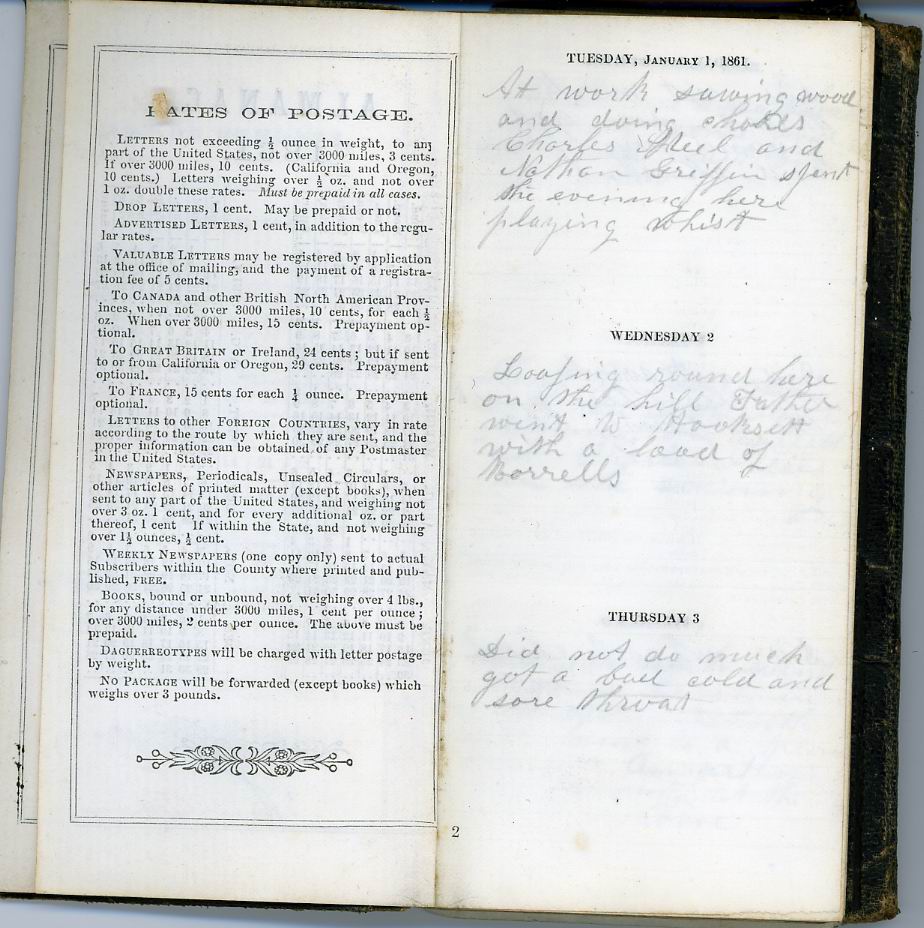 RATES OF POSTAGE.
LETTERS not exceeding ½ ounce in weight, to any
part of the United States, not over 3000 miles, 3 cents.
If over 3000 miles, 10 cents. (California and Oregon,
10 cents.) Letters weighing over ½ oz. and not over
1 oz. double these rates. Must be prepaid in all cases.
DROP LETTERS, 1 cent. May be prepaid or not.
ADVERTISED LETTERS, 1 cent, in addition to the regu-
lar rates.
VALUABLE LETTERS may be registered by application
at the office of mailing, and the payment of a registra-
tion fee of 5 cents.
TO CANADA and other British North American Prov-
inces, when not over 3000 miles, 10 cents, for each ½
oz. When over 3000 miles, 15 cents. Prepayment op-
tional.
TO GREAT BRITAIN or Ireland, 24 cents; but if sent
to or from California or Oregon, 29 cents. Prepayment
optional.
TO FRANCE, 15 cents for each ¼ ounce. Prepayment
optional.
LETTERS to other FOREIGN COUNTRIES, vary in rate
according to the route by which they are sent, and the
proper information can be obtained of any Postmaster
in the United States.
NEWSPAPERS, Periodicals, Unsealed Circulars, or
other articles of printed matter (except books), when
sent to any part of the United States, and weighing not
over 3 oz. 1 cent, and for every additional oz. or part
thereof, 1 cent If within the State, and not weighing
over 1½ ounces, ½ cent.
WEEKLY NEWSPAPERS (one copy only) sent to actual
Subscribers within the County where printed and pub-
lished, FREE.
BOOKS, bound or unbound, not weighing over 4 lbs.,
for any distance under 3000 miles, 1 cent per ounce;
over 3000 miles, 2 cents per ounce. The above must be
prepaid.
DAGUERREOTYPES will be charged with letter postage
by weight.
NO PACKAGE will be forwarded (except books) which
weighs over 3 pounds.
2
TUESDAY, JANUARY 1, 1861.
At work sawing wood
and doing chores
Charles and
Nathan Griffin spent
the evening here
playing whist
WEDNESDAY 2
Loafing round here
on the hill Father
went to Hooksett
with a load of
Borrells
THURSDAY 3
Did not do much
got a bad cold and
sore throat